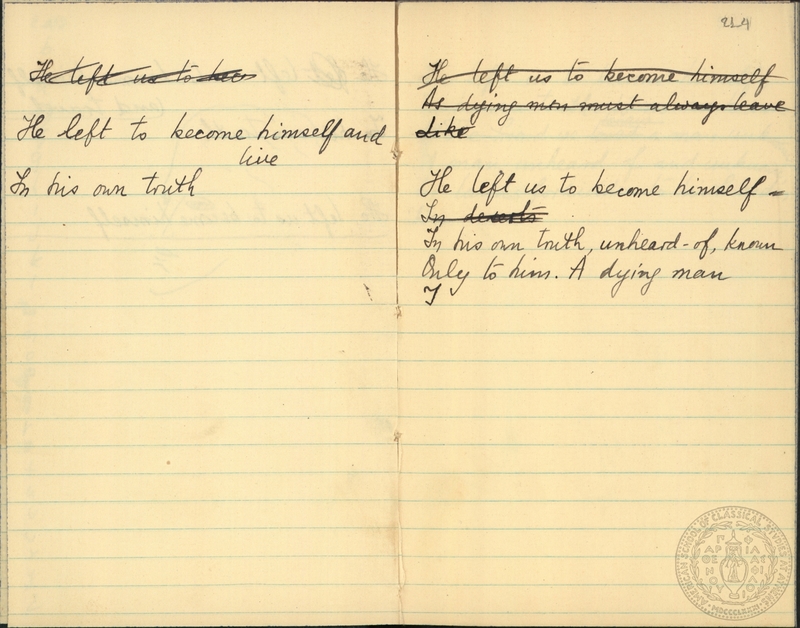 He left us to bec
He left to become himself and
live
In his own truth
214
He left us to become himself
As dying men must always leave
Like
He left us to become himself –
In deserts
In his own truth, unheard-of, known
Only to him. A dying man
I
AMERICAN SCHOOL OF CLASSICAL STUDIES AT ATHENS
ΠΑΡΘΕΝΟΥ
ΦΙΛΑΣ ΦΙΛΟΙ
MDCCCLXXXI